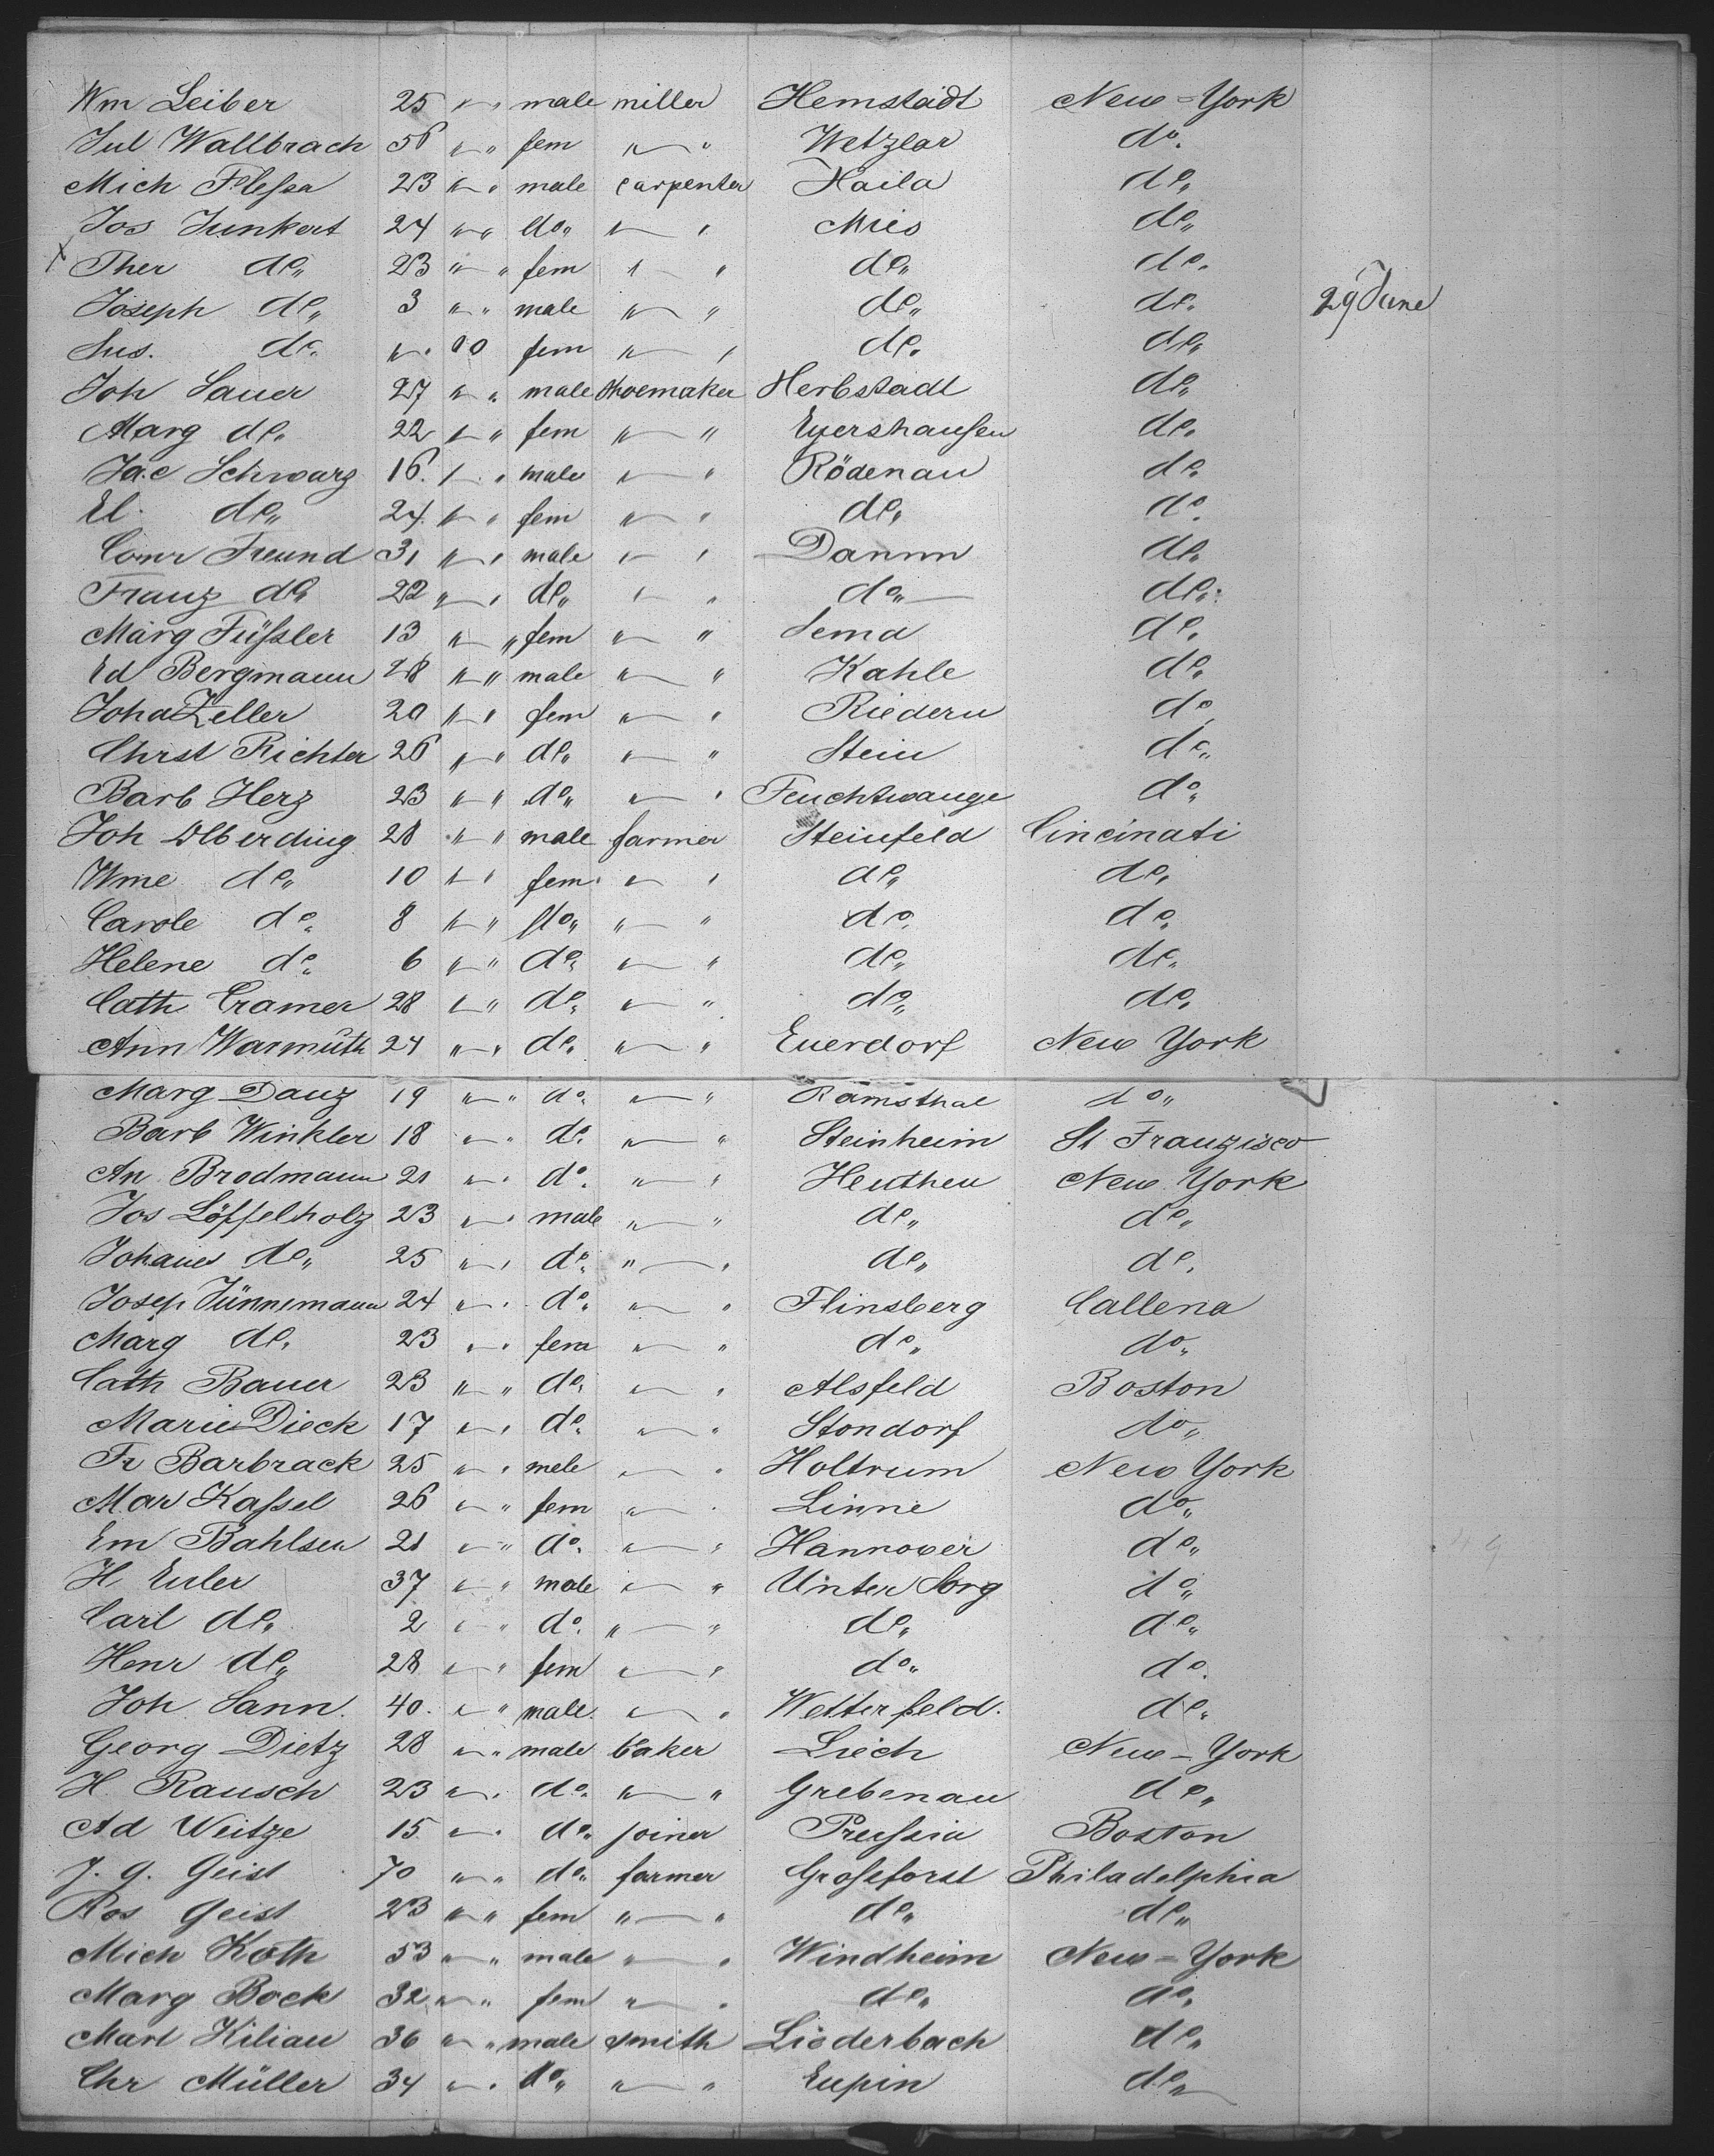 Wm Leiber 25 " " male miller Hemstadt New=York
Jul Wallbrach 56 " " fem " " Wetzlar do.
Mich Flessa 23 " " male carpenter Haila do
Jos Junkert 24 " " do " " Mies do
x Ther do 23 " " fem " " do do
Joseph do 3 " " male " " do do 29 June
Sus. do " " 00 fem " " do do
Joh Sauer 27 " " male shoemaker Herbstadt do
Marg do 22 " " fem " " Eyershausen do
Jac Schwarz 16 " " male " " Rödenau do
El. do 24 " " fem " " do do
Conr Freund 31 " " male " " Damm do
Franz do 22 " " do " " do do
Marg Füssler 13 " " fem " " Sema do
Ed Bergmann 28 " " male " " Kahle do
Joha Zeller 20 " " fem " " Riedern do
Christ Richter 26 " " do " " Stein do
Barb Herz 23 " " do " " Feuchtwange do
Joh Olberding 28 " " male farmer Steinfeld Cincinati
Wme do 10 " " fem " " do do
Carole do 8 " " do " " do do
Helene do 6 " " do " " do do
Cath Cramer 28 " " do " " do do
Ann Warmuth 24 " " do " " Euerdorf New York
Marg Danz 19 " " do " " Ramsthal do
Barb Winkler 18 " " do " " Steinheim St Franzisco
An Brodmann 21 " " do " " Heuthen New York
Jos Löffelholz 23 " " male " " do do
Johanes do 25 " " do " " do do
Josep Jünnemann 24 " " do " " Flinsberg Callena
Marg do 23 " " fem " " do do
Cath Bauer 23 " " do " " Alsfeld Boston
Marie Dieck 17 " " do " " Stondorf do
Fr Barbrack 25 " " mele " " Holtrum New York
Mar Kassel 26 " " fem " " Linne do
Em Bahlsen 21 " " do " " Hannover do
H. Euler 37 " " male " " Unter Sorg do
Carl do 2 " " do " " do do
Henr do 28 " " fem " " do do
Joh Sann. 40. " " male. " " Wetterfeld. do
Georg Dietz 28 " " male baker Liech New-York
H. Rausch 23 " " do " " Grebenau do
Ad Weitze 15 " " do joiner Preussia Boston
J. G. Geist 70 " " do farmer Grossforst Philadelphia
Ros Geist 23 " " fem " " do do
Mich Koth 53 " " male " " Windheim New=York
Marg Bock 32 " " fem " " do do
Mart Kilian 36 " " male smith Liederbach do
Chr Müller 34 " " do " " Eupin do